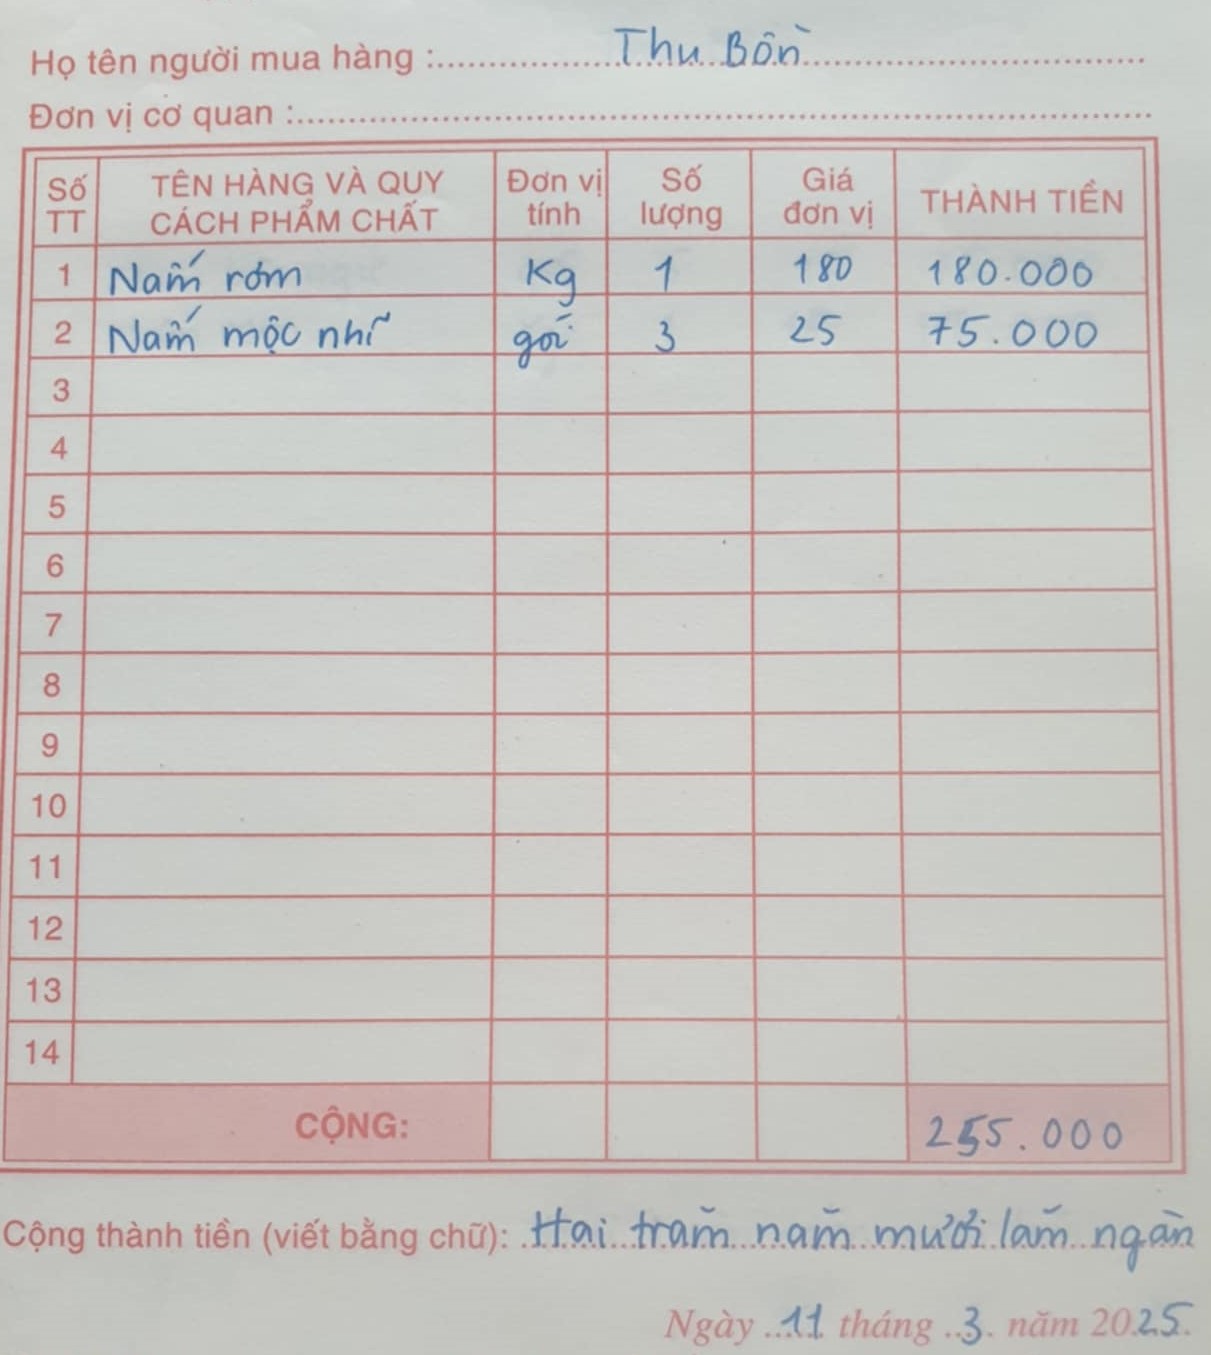 Họ tên người mua hàng : Thu Bồn
Đơn vị cơ quan :
Số TT | TÊN HÀNG VÀ QUY CÁCH PHẨM CHẤT | Đơn vị tính | Số lượng | Giá đơn vị | THÀNH TIỀN
1 Nấm rơm Kg 1 180 180.000
2 Nấm mộc nhĩ gói 3 25 75.000
3
4
5
6
7
8
9
10
11
12
13
14
CỘNG: 255.000
Cộng thành tiền (viết bằng chữ): Hai trăm năm mươi lăm ngàn
Ngày 11 tháng 3 năm 2025